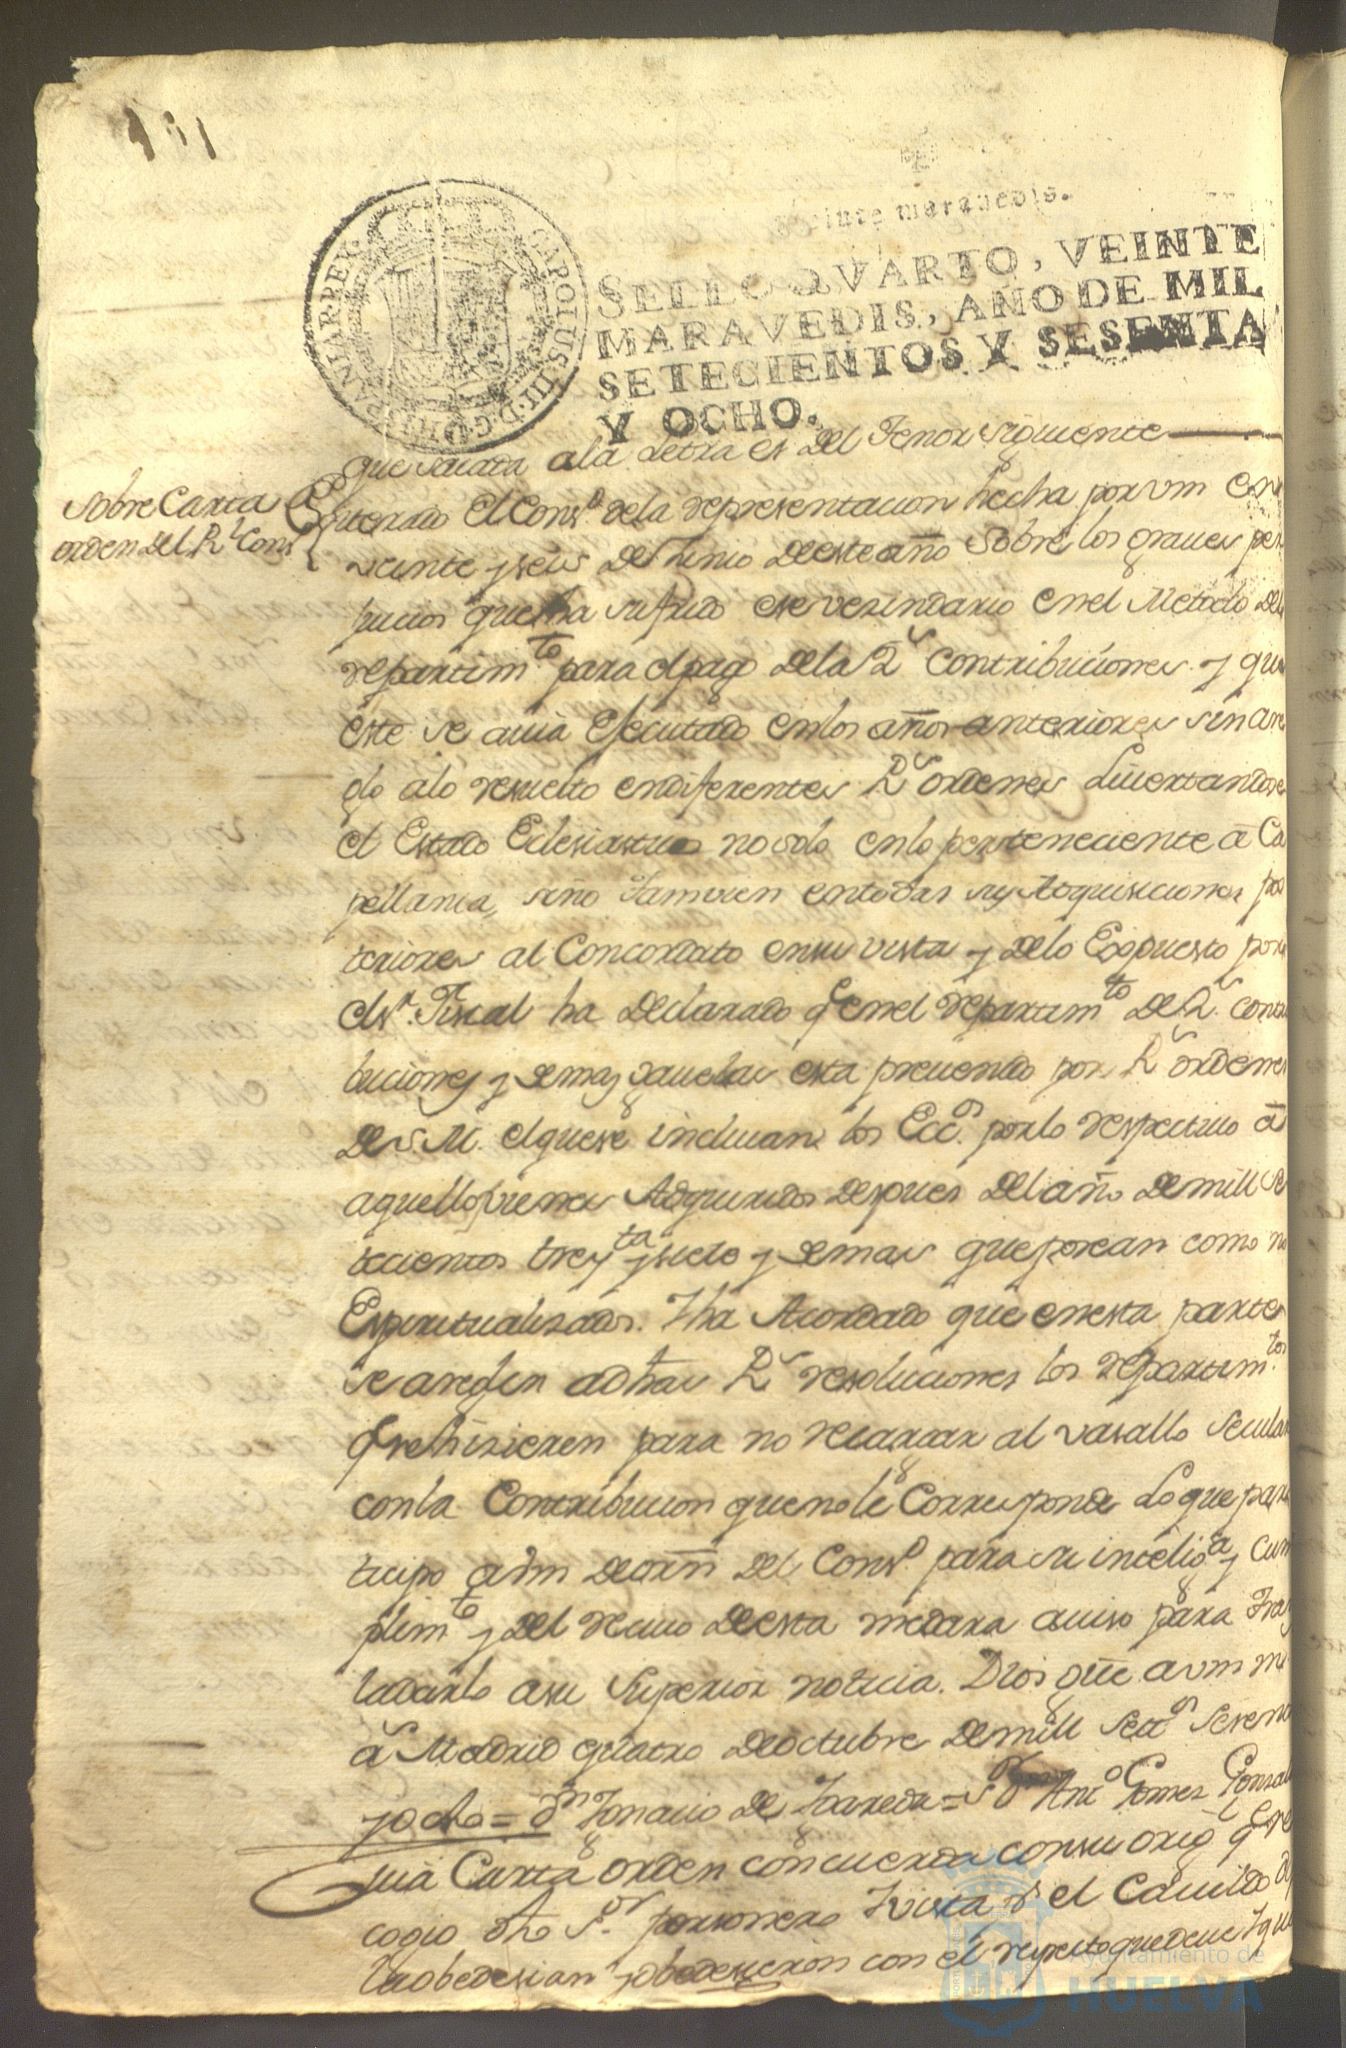 131
Veinte maravedis.
SELLO QVARTO, VEINTE
MARAVEDIS, AÑO DE MIL
SETECIENTOS Y SESENTA
Y OCHO.
CAROLUS III D G HISPANIAR REX
que sacada ala Letra es del Tenor siguiente
Sobre Carta
orden del Rl Conso
Enterado el Conso. dela representacion hecha por vm en
veinte y seis de Junio deeste año sobre los graues per
juicios que ha sufrido ese vezindario en el Metodo del
repartimto para el pago dela Rs Contribuciones y que
este se auia Executado en los años anteriores sin are
glo alo resuelto endiferentes Rs ordenes Liuertandose
el Estado Eclesiastico no solo en lo perteneciente a Ca
pellania, sino tamvien entodas sus Adquisiciones pos
teriores al Concordato en su vista y delo Expuesto por
el sr. Fiscal ha declarado qe en el repartimto de Rs. contri
buciones y demas gauelas esta preuenido por Rs ordenes
de S. M. el que se incluian los Eccos. por lo respectiuo a
aquellos vienes Adquiridos despues del año de mill se
tecientos treyta y siete y demas que posean como no
Espiritualizados. Y ha Acordado que enesta parte
se areglen adhas Rs resoluciones los repartimtos
qe se hizieren para no recargar al vasallo secular
con la Contribucion que no le Corresponde Lo que par
ticipo a vm de orn del Conso para su inteliga y cum
plimto y del reciuo de esta me dara auiso para Tras
ladarlo asu Superior noticia. Dios gue a vm ms
as Madrid quatro de octubre de mill settos sesenta
y ocho = Dn Ignacio de Ygareda = Sor Dn Anto Gomez Gonzal
cuia Carta orden concuerda con su origl qe re
cogio dho Sor. personero Y vista pr el Cauildo
la obedesian y obedecieron con el respecto que deue Y
Ayuntamiento de
HUELVA